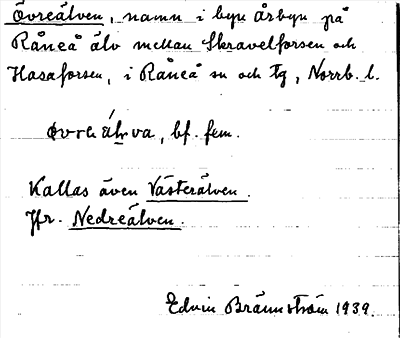 Övreälven, namn i byn Årbyn på
Råneå älv mellan Skravelforsen och
Hasaforsen, i Råneå sn och tg, Norrb. l.
övrɩ älva, bf. fem.
Kallas även Västerälven.
Jfr. Nedreälven.
Edvin Brännström 1939.